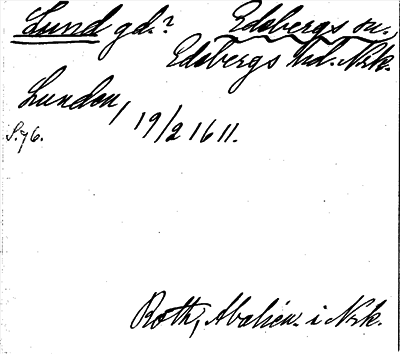 Lund gd.? Edsbergs sn.,
Edsbergs hd. Nrk.
Lunden, 19/2 1611.
S. 76.
Roth, Abalién. i Nrk.